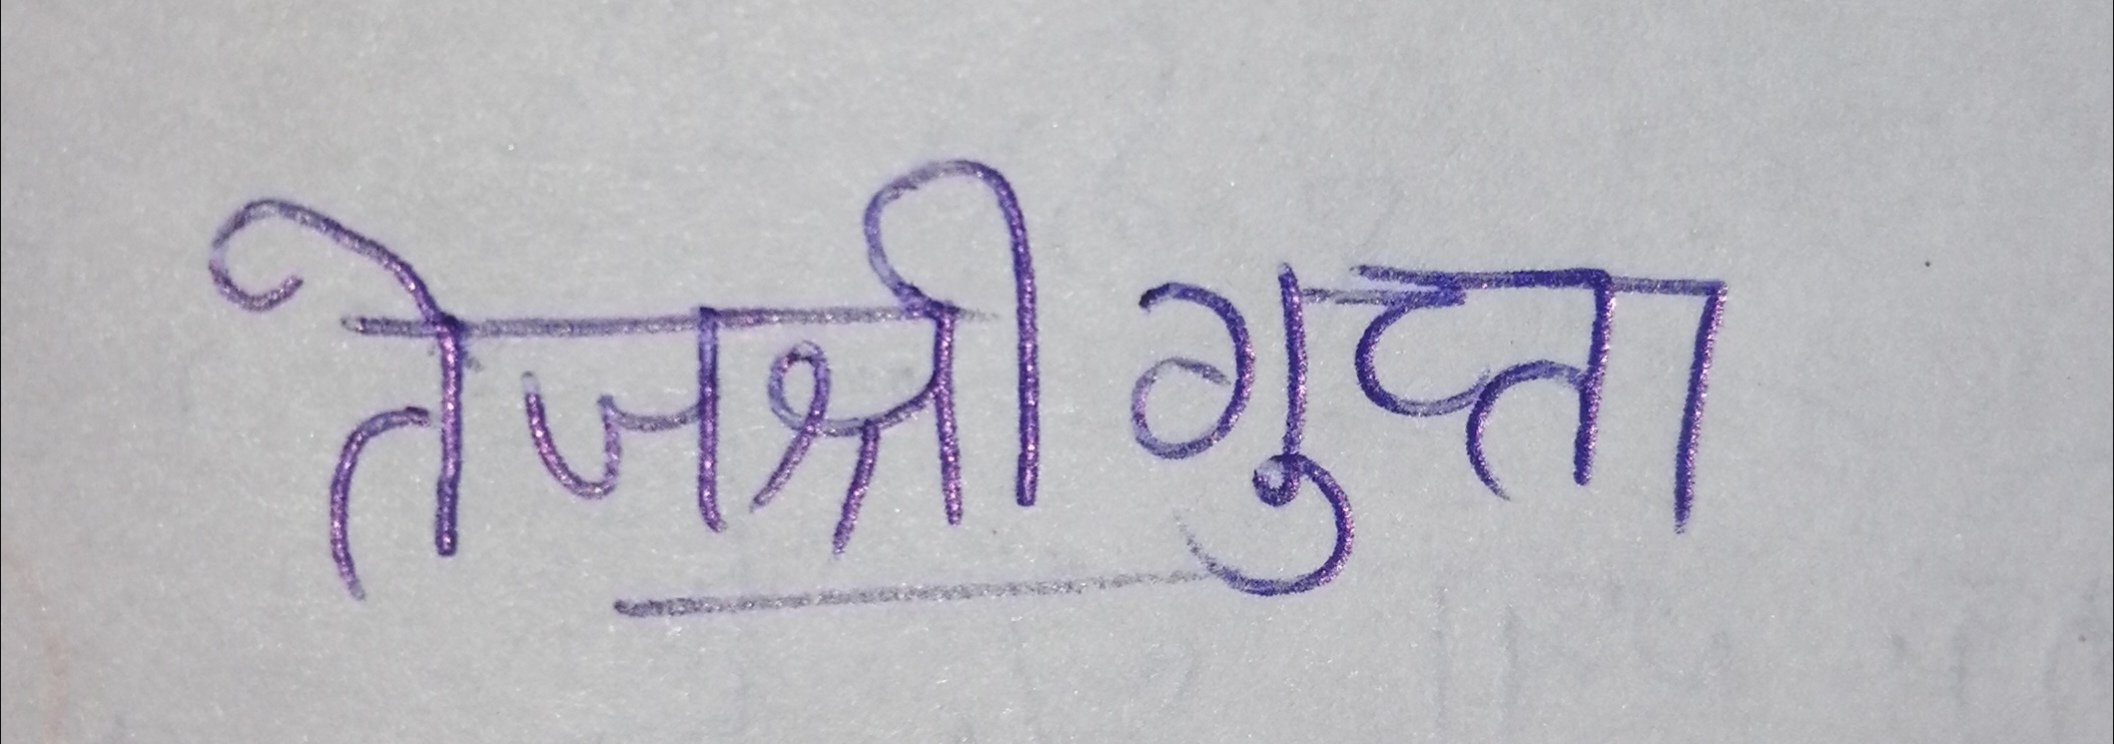 तेजश्री गुप्ता